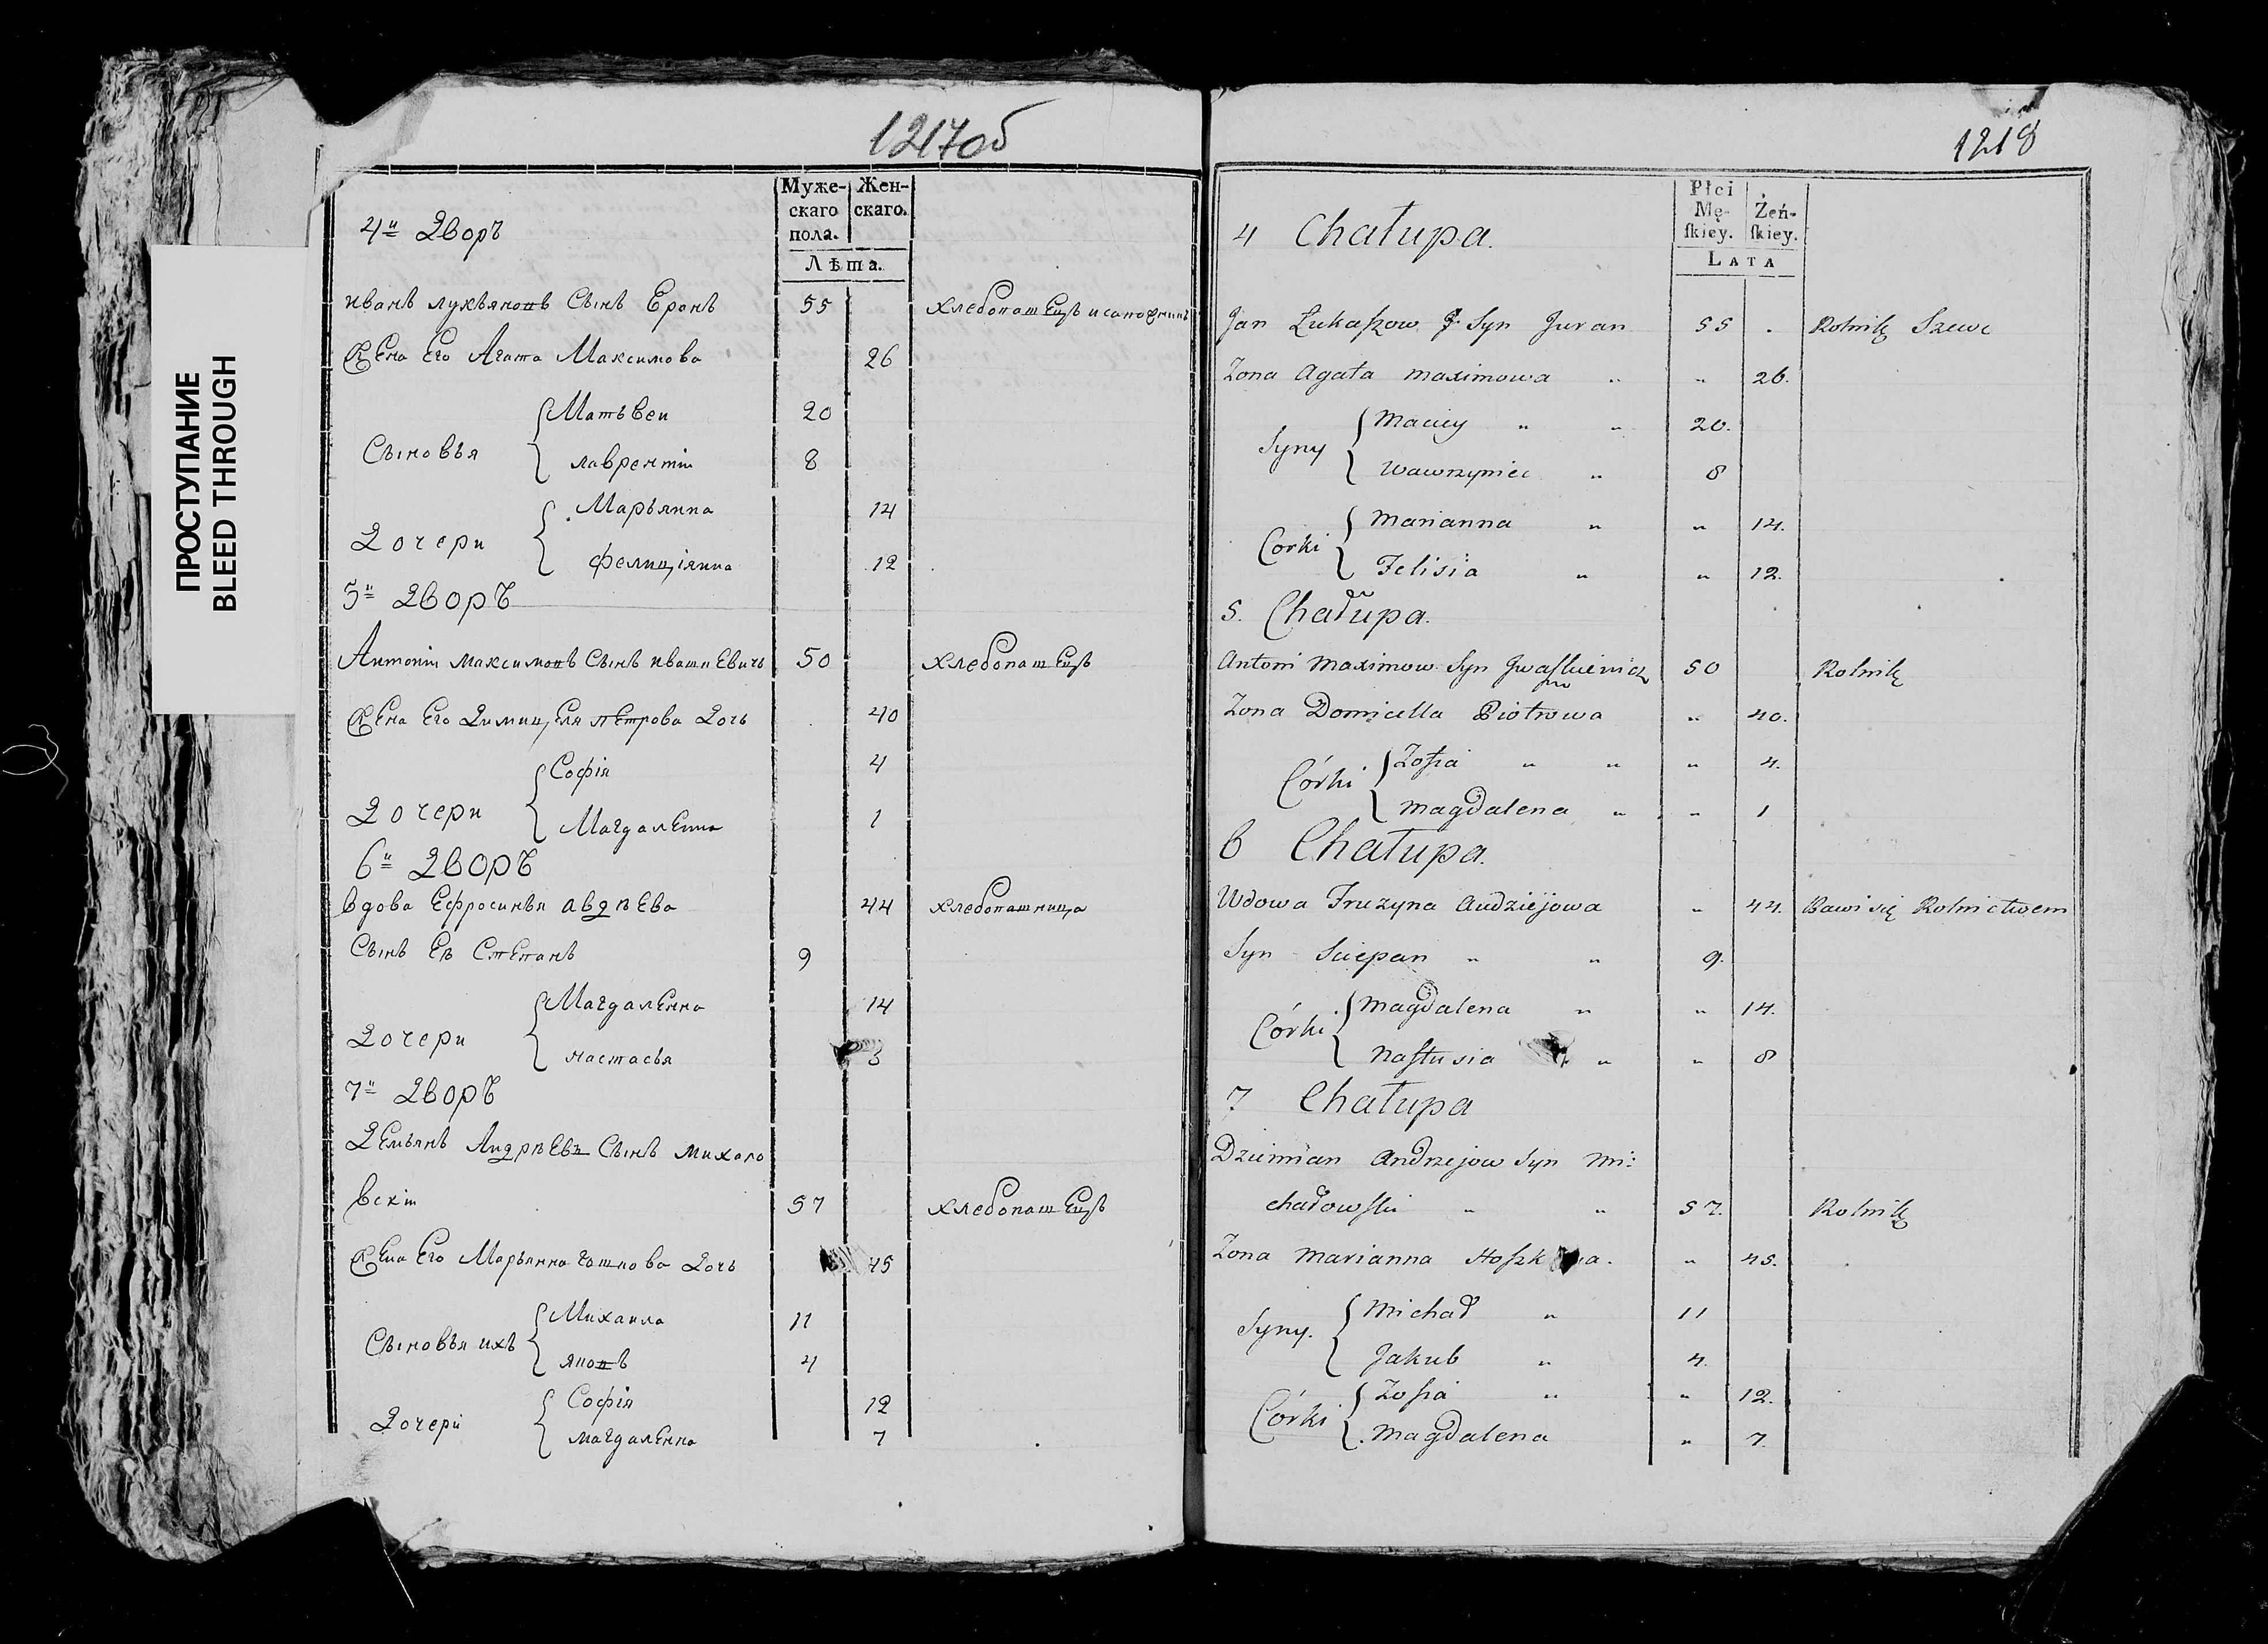 ПРОСТУПАНИЕ
BLEED THROUGH
1217об
Муже-
скаго
пола.
Жен-
скаго.
Лѣта.
4й Дворъ
Иванъ Лукьяновъ Сынъ 55 Хлебопашецъ
Жена Его Агата Максимова 26
Сыновья
Матьвеи 20
Лаврентiи 8
Дочери
Марьянна 14
Фелицiянна 12
5й Дворъ
Антонiи Максимовъ Сынъ Ивашкевичъ 50 Хлебопашецъ
Жена Его Димицеля Петрова Дочь 40
Дочери
Софiя 4
Магдаленна 1
6й Дворъ
Вдова Ефросинья Авдѣева 44 Хлебопашница
Сынъ Еѣ Степанъ 9
Дочери
Магдаленна 14
Настасья
7й Дворъ
Демьянъ Андрѣевъ Сынъ Михало
вскiи 57 Хлебопашецъ
Жена Его Марьянна Дочь 45
Сыновья ихъ
Михаила 11
Яковъ 4
Дочери
Софiя 12
Магдаленна 7
1218
Płci
Mę-
ſkiey.
Żeń-
ſkiey.
LATA
4 Chałupa.
Jan Łukaſzow Syn Juran 55 . Rolnik Szewc
Zona Agata Maximowa " " 26.
Syny
Maciey " " 20.
Wawrzyniec " 8
Corki
Marianna " " 14.
Felisia " " 12.
5. Chałupa.
Antoni Maximow Syn Jwaſzkiewicz 50 Rolnik
Zona Domicella Piotrowa " 40.
Córki
Zofia " " " 4.
Magdalena " " 1
6 Chałupa.
Wdowa Fruzyna Audziejowa " 44. Bawi się Rolnictwem
Syn Sciepan " " 9.
Córki
Magdalena " " 14.
Naſtusia " " 8
7 Chałupa
Dziemian Andrzejow Syn Mi:
chałowſki " " 57. Rolnik
Zona Marianna " 45.
Syny.
Michał " 11
Jakub " 4.
Córki
Zofia " " 12.
Magdalena " 7.